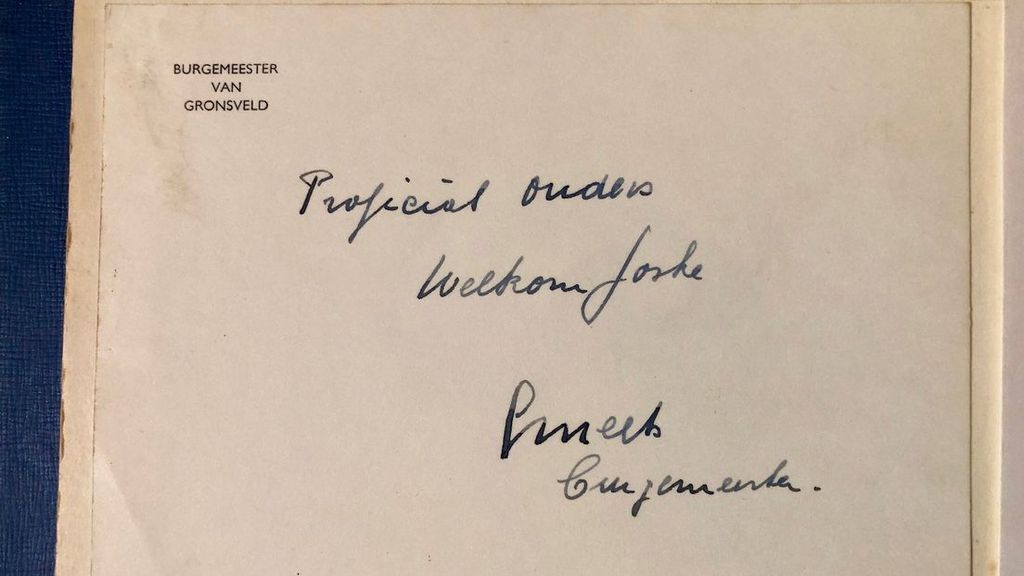 BURGEMEESTER
VAN
GRONSVELD
Proficiat ouders
Welkom Joske
Smeets
burgemeester.